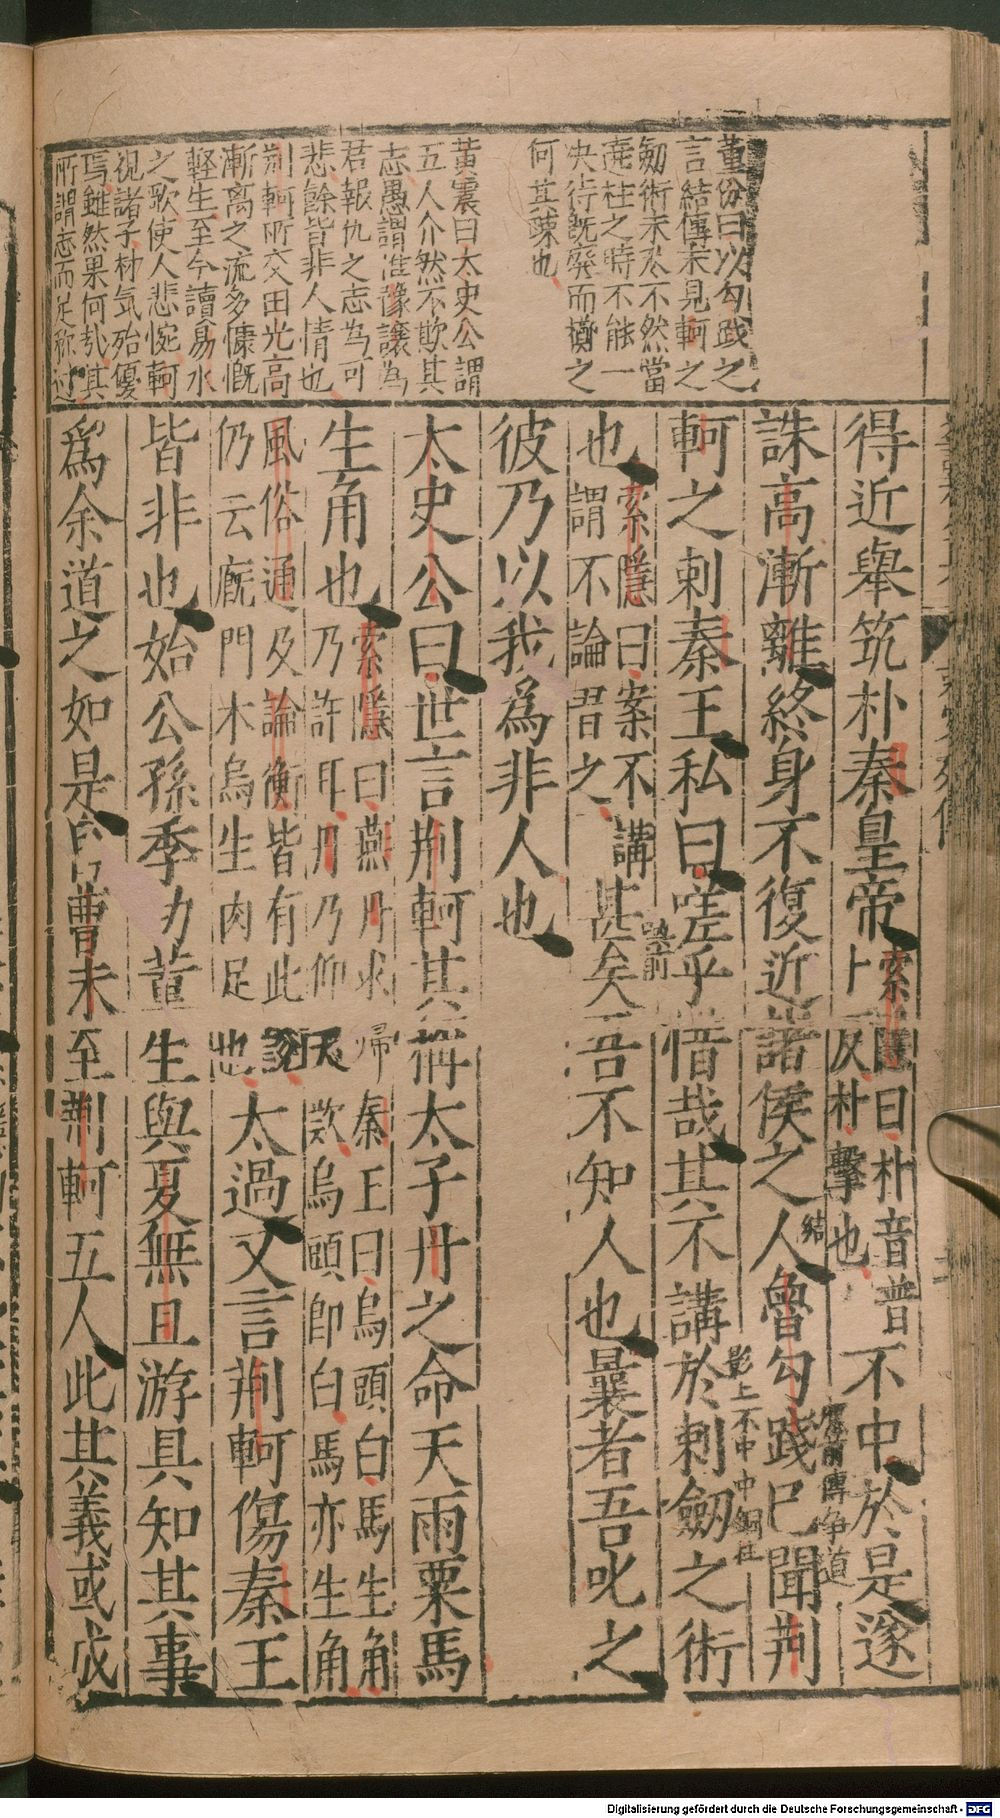 董份曰以勾踐之
言結傳末見軻之
劒術未必不然當
荊柱之時不能一
决待既廢而擿之
何其疎也
黃震曰太史公謂
五人介然不欺其
志愚謂惟豫讓為
君報仇之志為可
悲餘皆非人情也
荊軻所交田光高
漸离之流多慷慨
輕生至今讀易水
之歌使人悲惋軻
視諸子材氣殆優
焉雖然果何哉其
所謂志而足称过
得近舉筑朴秦皇帝上 索隱曰朴音普
反朴擊也 不中於是遂
誅高漸離終身不復近諸侯之人 結 魯勾踐巳聞荆
應前傳爭道
軻之刺秦王私曰嗟乎惜哉其不講於刺劒之術
影上不中中銅柱
也 索隱曰案不講
謂不論習之 甚矣吾不知人也曩者吾叱之
應前
彼乃以我為非人也
太史公曰世言荆軻其稱太子丹之命天雨粟馬
生角也 索隱曰燕丹求歸秦王曰烏頭白馬生角
乃許耳丹乃仰天歎烏頭即白馬亦生角
風俗通及論衡皆有此說
仍云厩門木烏生肉足也 太過又言荆軻傷秦王
皆非也始公孫季功董生與夏無且游具知其事
為余道之如是自曹沫至荆軻五人此其義或成
Digitalisierung gefördert durch die Deutsche Forschungsgemeinschaft - DFG